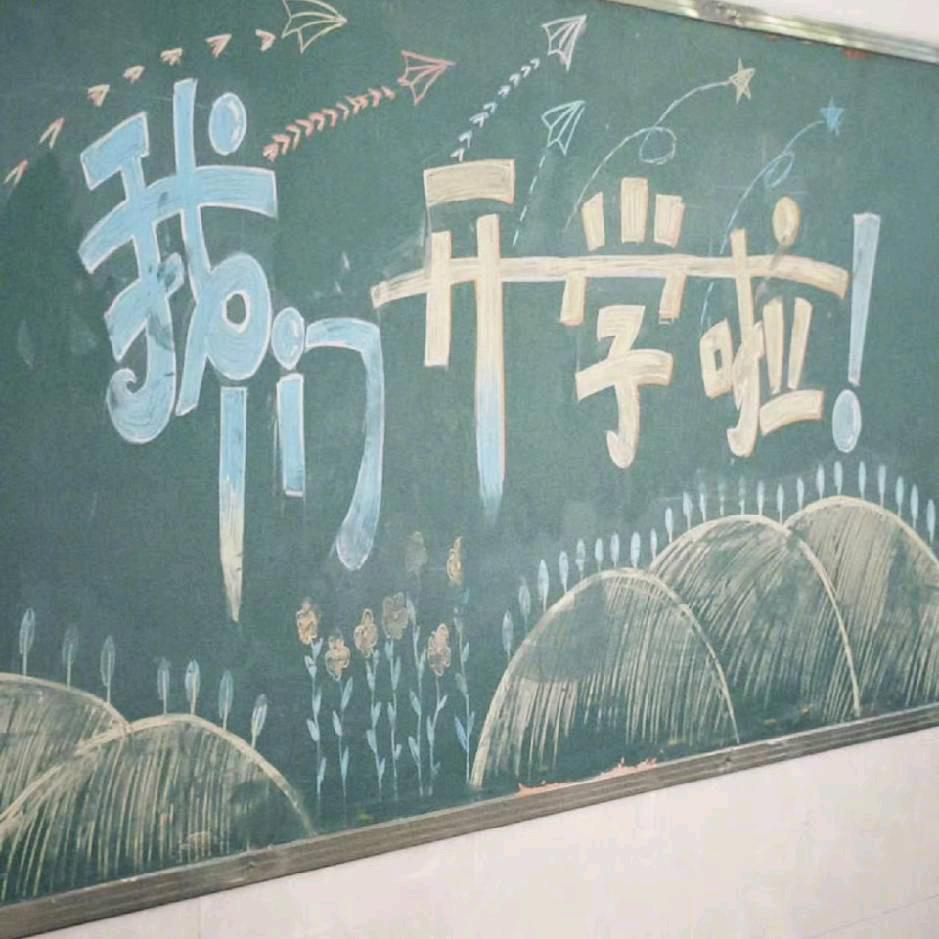 我们开学啦!